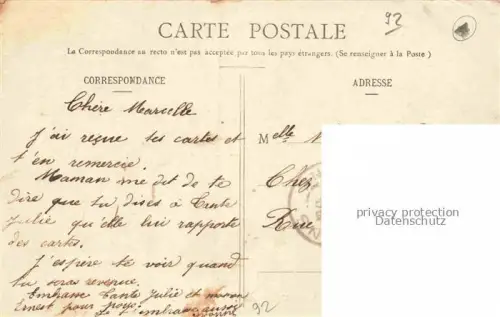 92
CARTE POSTALE
La Correspondance au recto n'est pas acceptée par tous les pays étrangers. (Se renseigner à la Poste)
CORRESPONDANCE
ADRESSE
Chère Marcelle
J'ai reçue tes cartes et
t'en remercie.
Maman me dit de te
dire que tu dises à Tante
Julie qu'elle lui rapporte
des cartes.
J'espère te voir quand
tu seras revenue.
Embrasse Tante Julie et
Ernest pour
Je t'embrasse aussi
Yvonne
Melle
Chez
Rue
privacy protection
Datenschutz
92